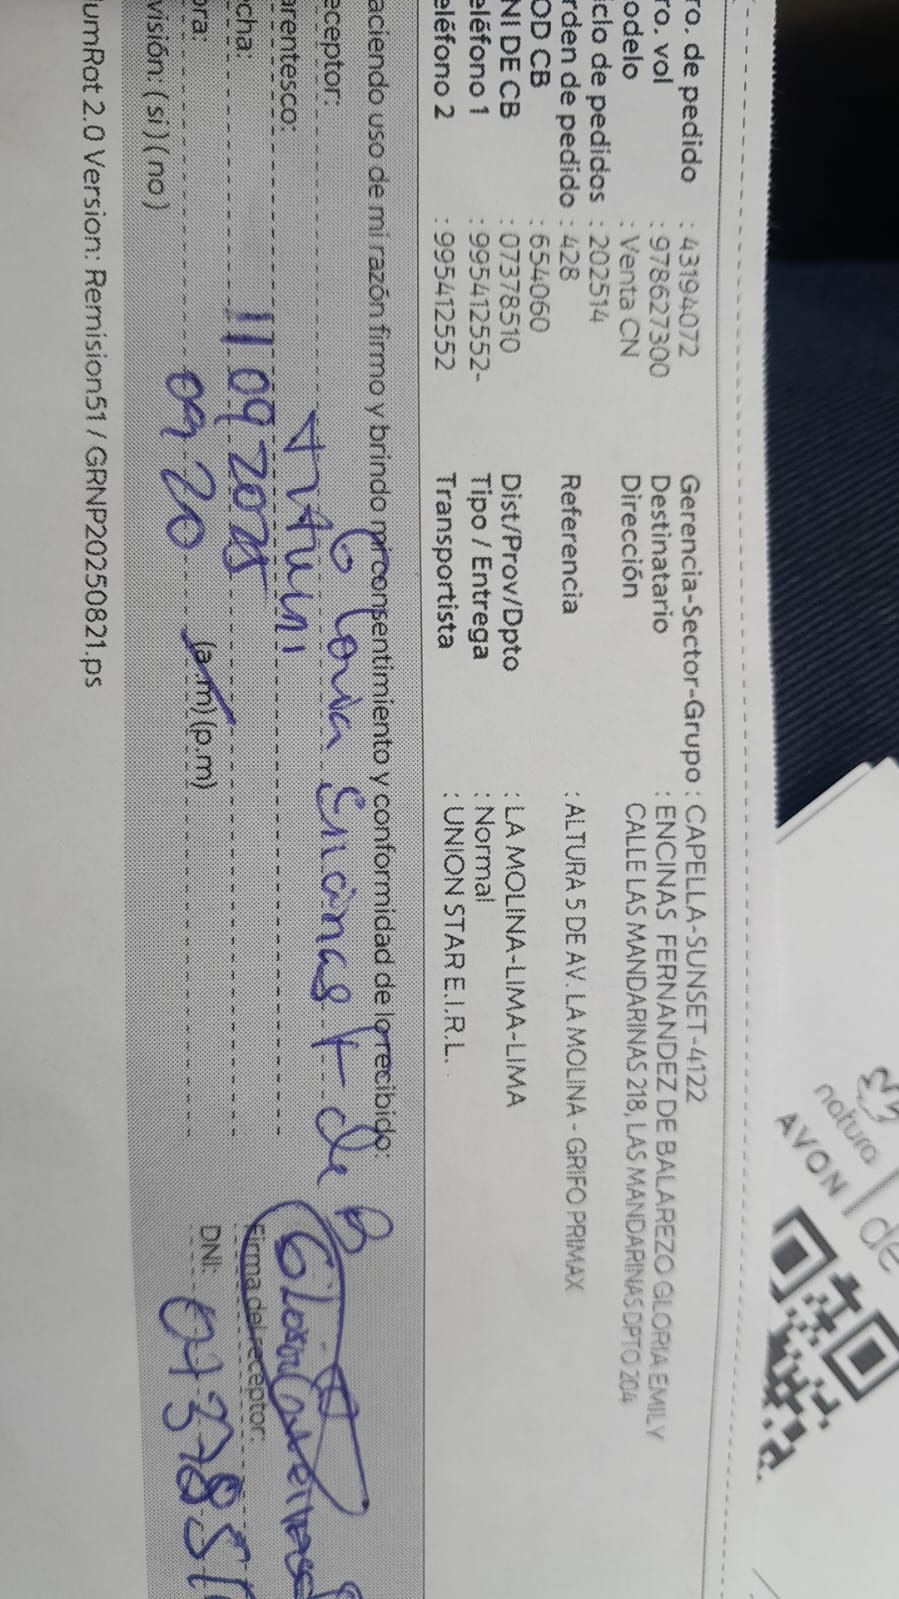 ro. de pedido : 43194072 Gerencia-Sector-Grupo : CAPELLA-SUNSET-4122
ro. vol : 978627300 Destinatario : ENCINAS FERNANDEZ DE BALAREZO GLORIA EMILY
odelo : Venta CN Dirección CALLE LAS MANDARINAS 218, LAS MANDARINAS DPTO 204
iclo de pedidos : 202514
rden de pedido : 428 Referencia : ALTURA 5 DE AV. LA MOLINA - GRIFO PRIMAX
OD CB : 654060
NI DE CB : 07378510 Dist/Prov/Dpto : LA MOLINA-LIMA-LIMA
eléfono 1 : 995412552- Tipo / Entrega : Normal
eléfono 2 : 995412552 Transportista : UNION STAR E.I.R.L.
aciendo uso de mi razón firmo y brindo mi consentimiento y conformidad de lo recibido:
eceptor: Gloria Encinas F de B
arentesco:
cha: 11 09 2025 Firma del receptor:
ora: 09 20 (a.m) (p.m) DNI: 0737851
visión: ( si ) ( no )
umRot 2.0 Version: Remision51 / GRNP20250821.ps
natura
AVON
de